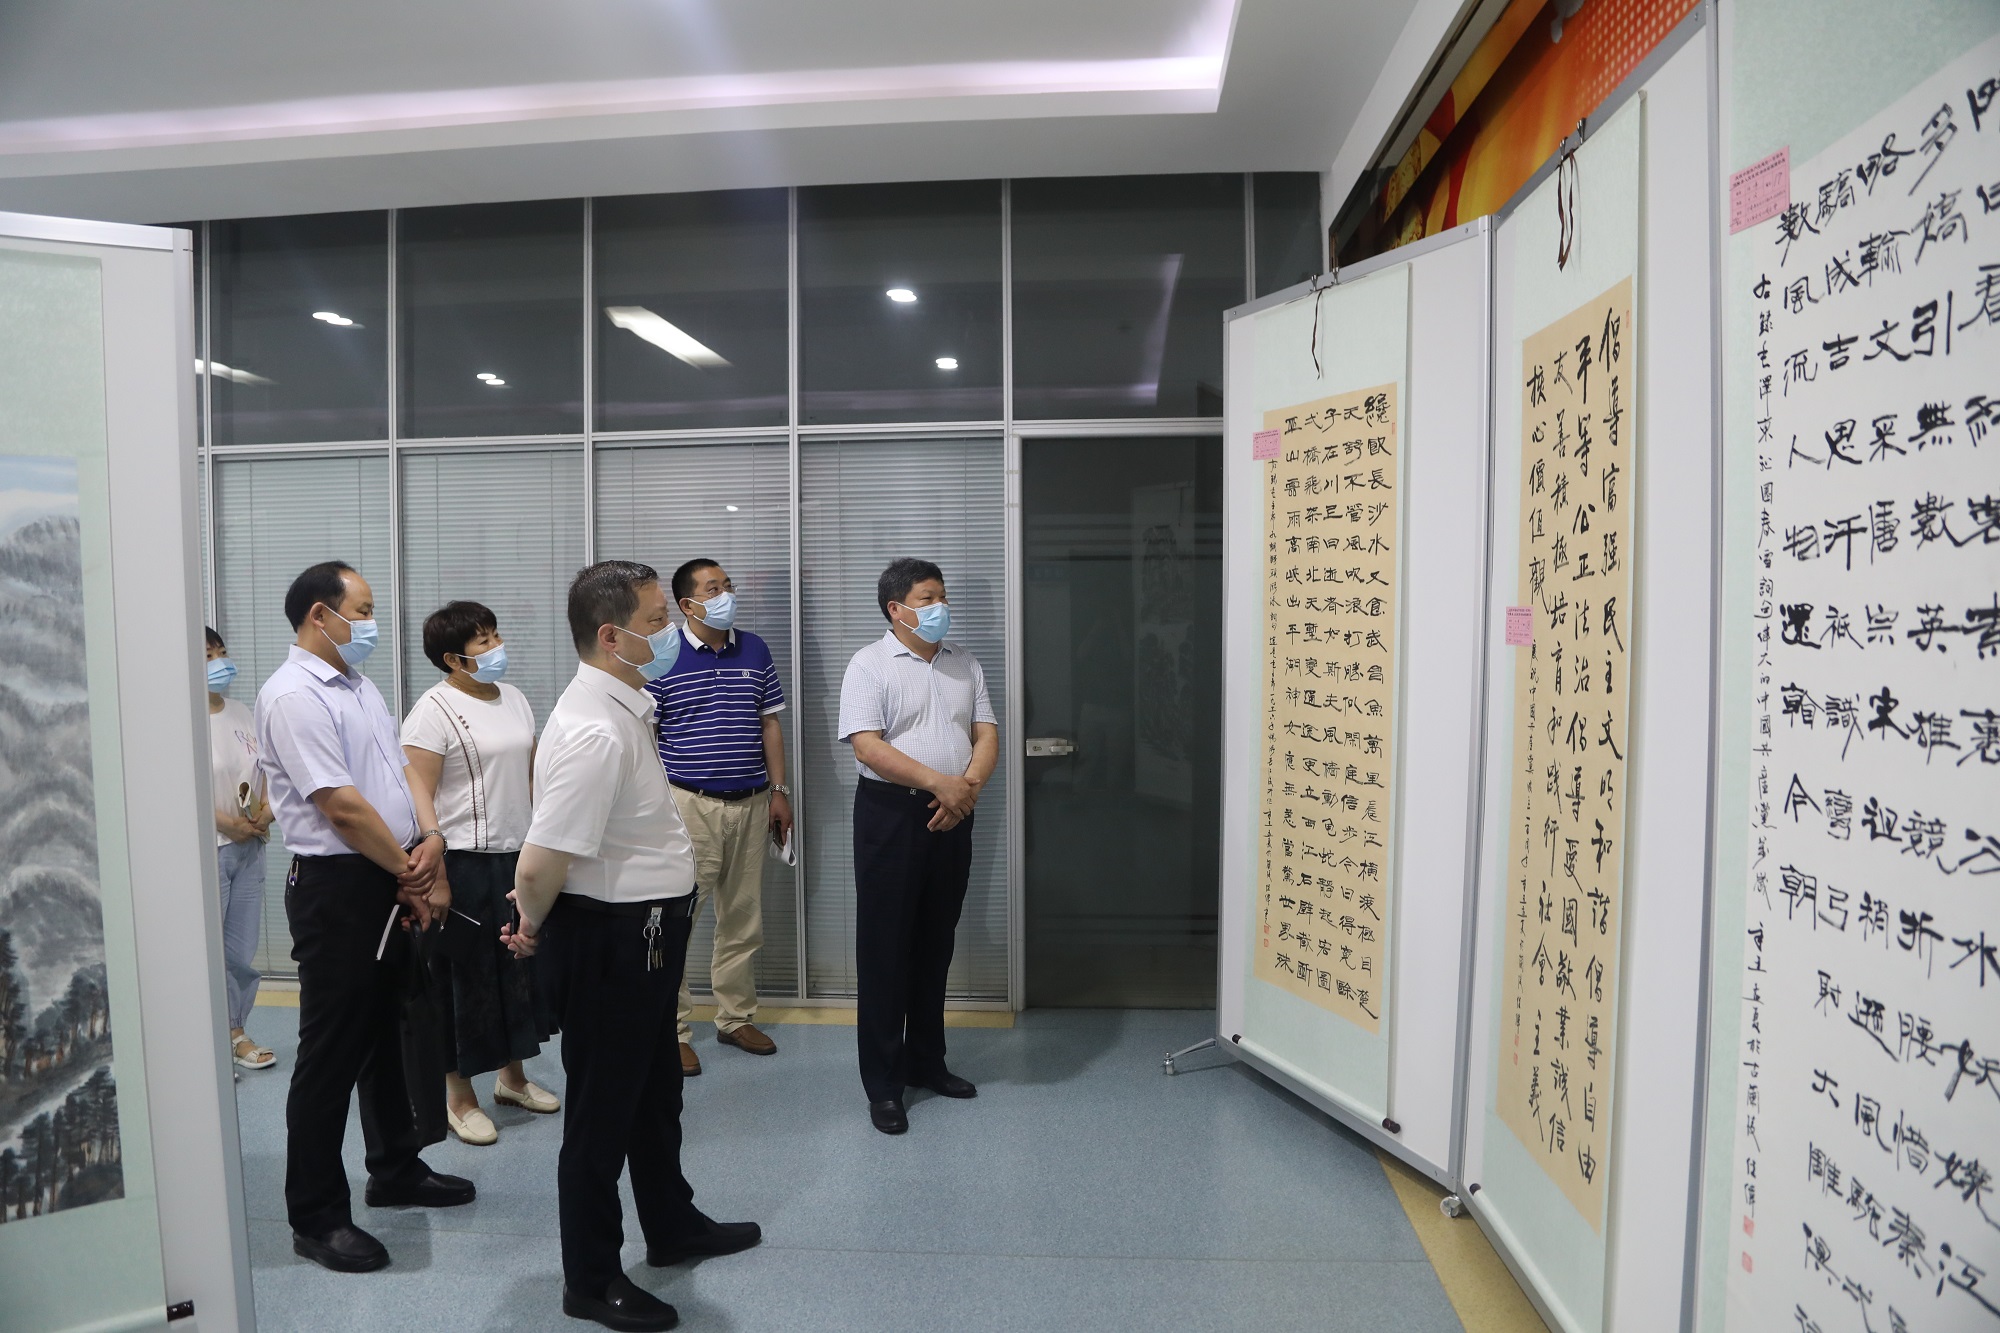 纔飲長沙水又食武昌魚萬里長江橫渡極目楚
天舒不管風吹浪打勝似閑庭信步今日得寬餘
子在川上曰逝者如斯夫風檣動龜蛇靜起宏圖
弌橋飛架南北天塹變通途更立西江石壁截斷
巫山雲雨高峽出平湖神女應無恙當驚世界殊
倡導富强民主文明和諧倡導自由
平等公正法治倡導愛國敬業誠信
友善積極培育和践行社會主義
核心價值觀
日看紅裝素裹分外妖嬈江
多嬌引無數英雄競折腰惜秦
略輸文采唐宗宋祖稍遜風騷
驕成吉思汗祗識彎弓射大雕俱
數風流人物還看今朝
右錄毛澤東沁園春雪詞 偉大的中國共產黨萬歲